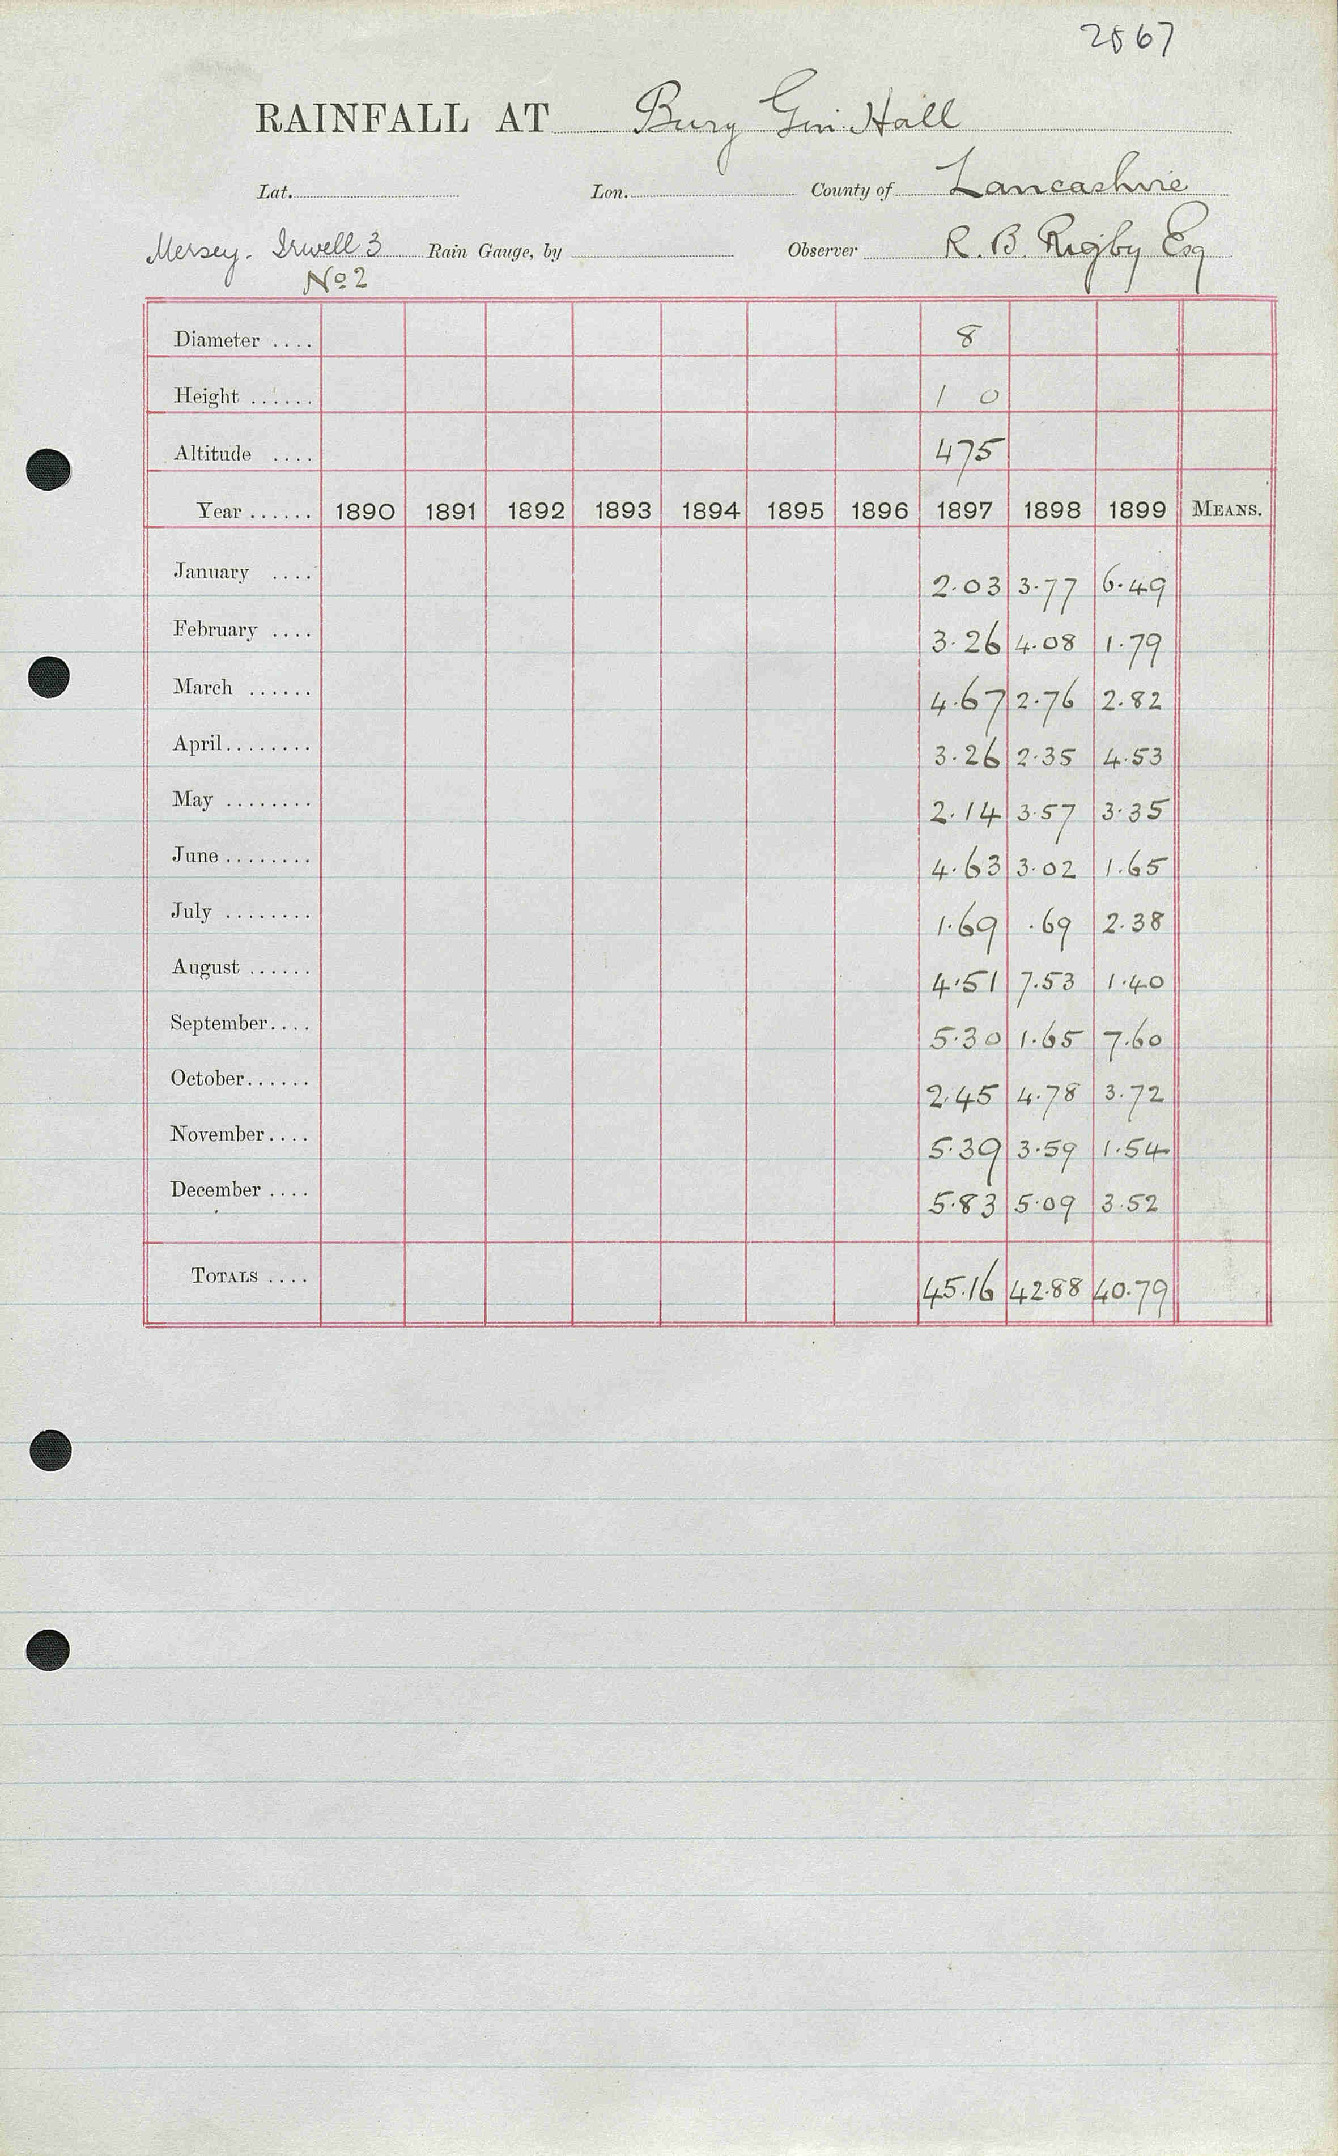 2567
RAINFALL AT Bury Gin Hall
Lat. Lon. County of Lancashire
Mersey. Irwell 3 Rain Gauge, by Observer R. B. Rigby Esq
No 2
Diameter .... 8
Height ...... 1 0
Altitude .... 475
Year ...... 1890 1891 1892 1893 1894 1895 1896 1897 1898 1899 MEANS.
January .... 2.03 3.77 6.49
February .... 3.26 4.08 1.79
March ...... 4.67 2.76 2.82
April........ 3.26 2.35 4.53
May ........ 2.14 3.57 3.35
June ........ 4.63 3.02 1.65
July ........ 1.69 .69 2.38
August ...... 4.51 7.53 1.40
September.... 5.30 1.65 7.60
October...... 2.45 4.78 3.72
November.... 5.39 3.59 1.54
December .... 5.83 5.09 3.52
TOTALS .... 45.16 42.88 40.79